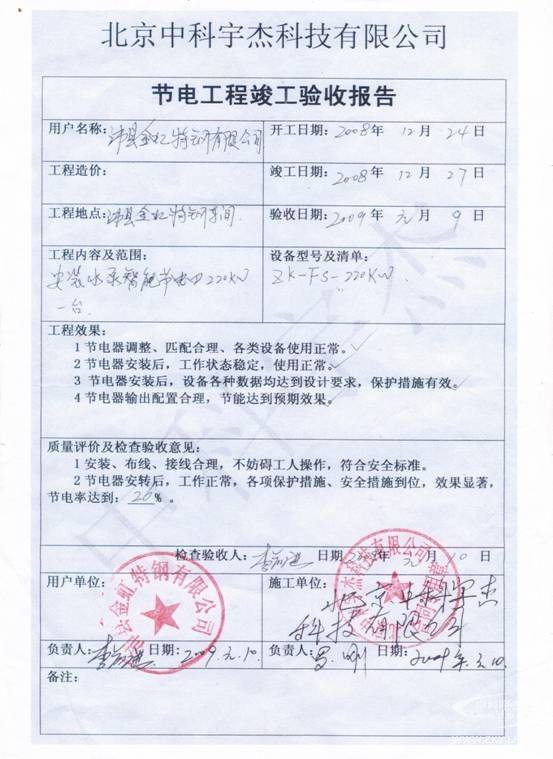 北京中科宇杰科技有限公司
节电工程竣工验收报告
用户名称：沛县金虹特钢有限公司
开工日期：2008年 12月 24日
工程造价：
竣工日期：2008年 12月 27日
工程地点：沛县金虹特钢车间
验收日期：2009年 元月 9日
工程内容及范围：
安装水泵智能节电器220KW
一台.
设备型号及清单：
ZK-FS-220KW
工程效果：
1 节电器调整、匹配合理、各类设备使用正常。✓
2 节电器安装后，工作状态稳定，使用正常。✓
3 节电器安装后，设备各种数据均达到设计要求，保护措施有效。✓
4 节电器输出配置合理，节能达到预期效果。
质量评价及检查验收意见：
1 安装、布线、接线合理，不妨碍工人操作，符合安全标准。
2 节电器安转后，工作正常，各项保护措施、安全措施到位，效果显著，
节电率达到：20%。
检查验收人： 日期 元月10日
用户单位：
沛县金虹特钢有限公司
施工单位：
北京中科宇杰
科技有限公司
负责人： 日期：2009.元.10.
负责人： 日期：2009年.元.10.
备注：
中科宇杰